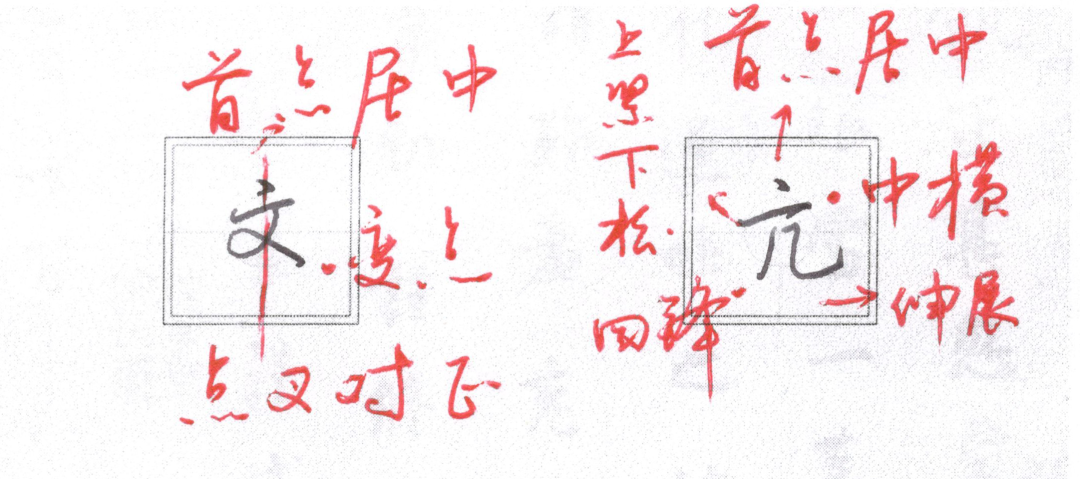 首点居中
文
变点
点叉对正
首点居中
上紧下松
亢
中横
回锋
伸展